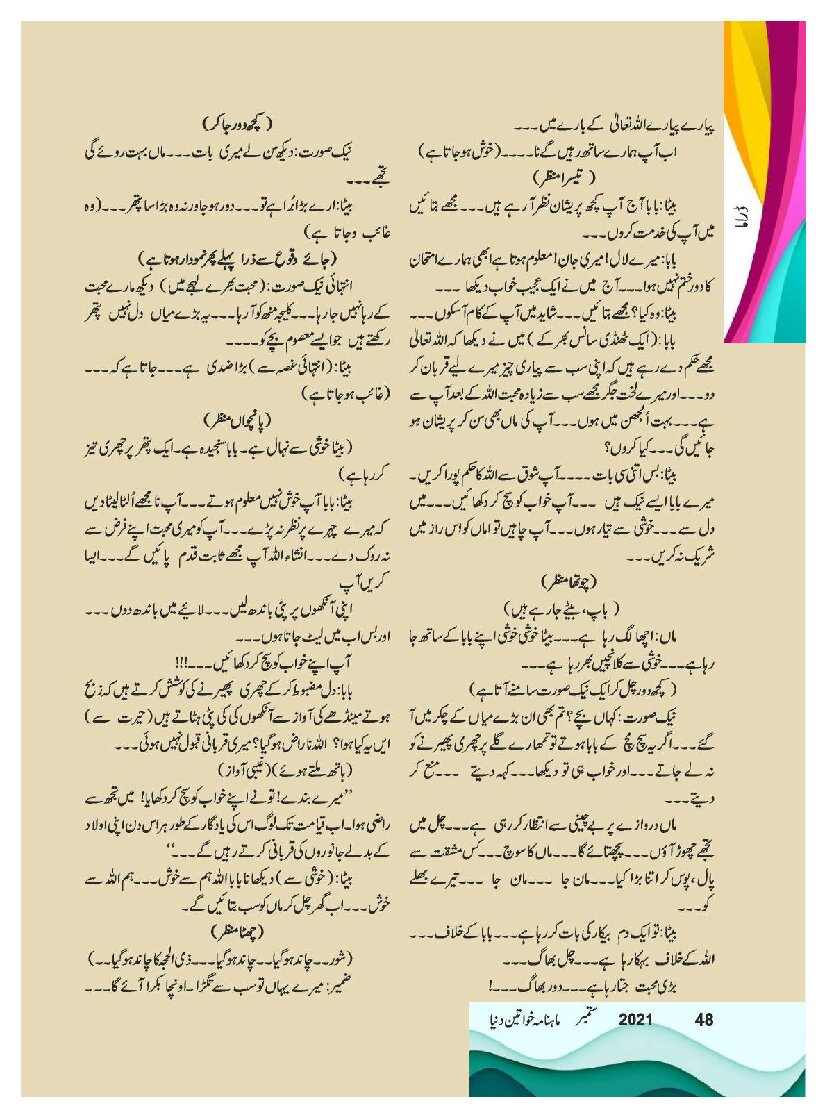 ڈراما
پیارے پیارے اللہ تعالیٰ کے بارے میں ۔۔۔
اب آپ ہمارے ساتھ رہیں گے نا۔۔۔۔(خوش ہوجاتا ہے)
(تیسرا منظر)
بیٹا: بابا آج آپ کچھ پریشان نظر آرہے ہیں۔۔۔مجھے بتائیں
میں آپ کی خدمت کروں۔۔۔
بابا: میرے لال! میری جان! معلوم ہوتا ہے ابھی ہمارے امتحان
کا دور ختم نہیں ہوا۔۔۔آج میں نے ایک عجیب خواب دیکھا ۔۔۔
بیٹا: وہ کیا؟ مجھے بتائیں۔۔۔شاید میں آپ کے کام آسکوں۔۔۔
بابا: (ایک ٹھنڈی سانس بھر کے) میں نے دیکھا کہ اللہ تعالیٰ
مجھے حکم دے رہے ہیں کہ اپنی سب سے پیاری چیز میرے لیے قربان کر
دو۔۔۔اور میرے لخت جگر مجھے سب سے زیادہ محبت اللہ کے بعد آپ سے
ہے۔۔۔بہت اُلجھن میں ہوں۔۔۔آپ کی ماں بھی سن کر پریشان ہو
جائیں گی۔۔۔کیا کروں؟
بیٹا: بس اتنی سی بات۔۔۔۔آپ شوق سے اللہ کا حکم پورا کریں۔
میرے بابا ایسے نیک ہیں ۔۔۔آپ خواب کو سچ کر دکھائیں۔۔۔میں
دل سے۔۔۔خوشی سے تیار ہوں۔۔۔آپ چاہیں تو اماں کو اس راز میں
شریک نہ کریں۔۔۔
(چوتھا منظر)
(باپ، بیٹے جارہے ہیں)
ماں: اچھا لگ رہا ہے۔۔۔بیٹا خوشی خوشی اپنے بابا کے ساتھ جا
رہا ہے۔۔۔خوشی سے کلانچیں بھر رہا ہے۔۔۔
(کچھ دور چل کر ایک نیک صورت سامنے آتا ہے)
نیک صورت: کہاں بچے؟ تم بھی ان بڑے میاں کے چکر میں آ
گئے۔۔۔اگر یہ سچ مچ کے بابا ہوتے تو تمھارے گلے پر چھری پھیرنے کو
نہ لے جاتے۔۔۔اور خواب ہی تو دیکھا۔۔۔کہہ دیتے ۔۔۔منع کر
دیتے۔۔۔
ماں دروازے پر بے چینی سے انتظار کر رہی ہے۔۔۔چل میں
تجھے چھوڑ آؤں۔۔۔پچھتائے گا۔۔۔ماں کا سوچ۔۔۔کس مشقت سے
پال، پوس کر اتنا بڑا کیا۔۔۔مان جا ۔۔۔مان جا ۔۔۔تیرے بھلے
کو۔۔۔
بیٹا: تو ایک دم بیکار کی بات کر رہا ہے۔۔۔بابا کے خلاف۔۔۔
اللہ کے خلاف بہکا رہا ہے۔۔۔چل بھاگ۔۔۔
بڑی محبت جتا رہا ہے۔۔۔دور بھاگ۔۔۔!
(کچھ دور جا کر)
نیک صورت: دیکھ سن لے میری بات۔۔۔ماں بہت روئے گی
تجھے۔۔۔
بیٹا: ارے بڑا بُرا ہے تو۔۔۔دور ہو جا ورنہ وہ بڑا سا پتھر۔۔۔(وہ
غائب وجاتا ہے)
(جائے وقوع سے ذرا پہلے پھر نمودار ہوتا ہے)
انتہائی نیک صورت: (محبت بھرے لہجے میں) دیکھ مارے محبت
کے رہا نہیں جا رہا۔۔۔کلیجہ منھ کو آرہا۔۔۔یہ بڑے میاں دل نہیں پتھر
رکھتے ہیں جو ایسے معصوم بچے کو۔۔۔۔
بیٹا: (انتہائی غصہ سے) بڑا ضدی ہے۔۔۔جاتا ہے کہ۔۔۔
(غائب ہوجاتا ہے)
(پانچواں منظر)
(بیٹا خوشی سے نہال ہے۔ بابا سنجیدہ ہے۔ ایک پتھر پر چھری تیز
کر رہا ہے)
بیٹا: بابا آپ خوش نہیں معلوم ہوتے۔۔۔آپ نا مجھے اُلٹا لیٹا دیں
کہ میرے چہرے پر نظر نہ پڑے۔۔۔آپ کو میری محبت اپنے فرض سے
نہ روک دے۔۔۔انشاء اللہ آپ مجھے ثابت قدم پائیں گے۔۔۔ایسا
کریں آپ
اپنی آنکھوں پر پٹی باندھ لیں۔۔۔لائیے میں باندھ دوں ۔۔۔
اور بس اب میں لیٹ جاتا ہوں۔۔۔
آپ اپنے خواب کو سچ کر دکھائیں۔۔۔!!!
بابا: دل مضبوط کر کے چھری پھیرنے کی کوشش کرتے ہیں کہ ذبح
ہوتے مینڈھے کی آواز سے آنکھوں کی کی پٹی ہٹاتے ہیں (حیرت سے)
ایں یہ کیا ہوا؟ اللہ ناراض ہوگیا؟ میری قربانی قبول نہیں ہوئی۔۔۔
(ہاتھ ملتے ہوئے) (غیبی آواز)
’’میرے بندے! تو نے اپنے خواب کو سچ کر دکھایا! میں تجھ سے
راضی ہوا۔ اب قیامت تک لوگ اس کی یادگار کے طور ہر اس دن اپنی اولاد
کے بدلے جانوروں کی قربانی کرتے رہیں گے۔۔۔‘‘
بیٹا: (خوشی سے) دیکھا نا بابا اللہ ہم سے خوش۔۔۔ہم اللہ سے
خوش۔۔۔اب گھر چل کر ماں کو سب بتائیں گے۔
(چھٹا منظر)
(شور۔۔چاند ہوگیا۔۔چاند ہوگیا۔۔۔ذی الحجہ کا چاند ہوگیا۔۔)
ضمیر: میرے یہاں تو سب سے تگڑا۔ اونچا بکرا آئے گا۔۔۔
48 ماہنامہ خواتین دنیا ستمبر 2021